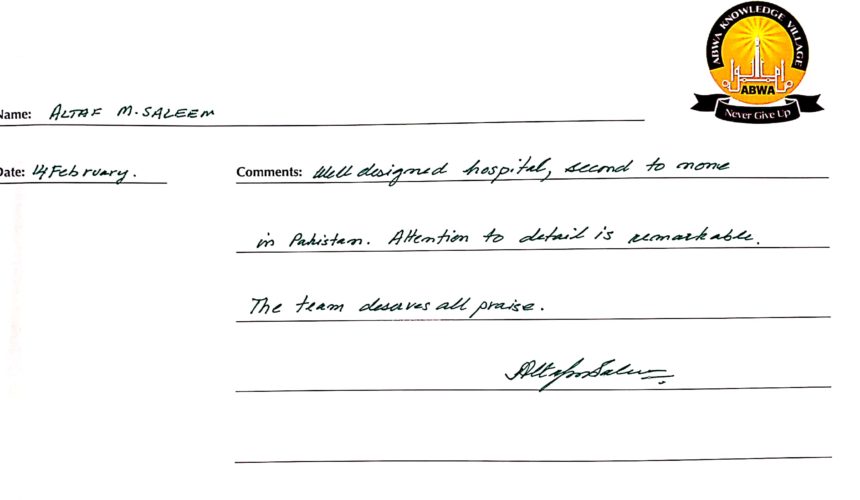 ABWA KNOWLEDGE VILLAGE
ABWA
Never Give Up
Name: ALTAF M. SALEEM
Date: 4 February. Comments: Well designed hospital, second to none
in Pakistan. Attention to detail is remarkable.
The team deserves all praise.